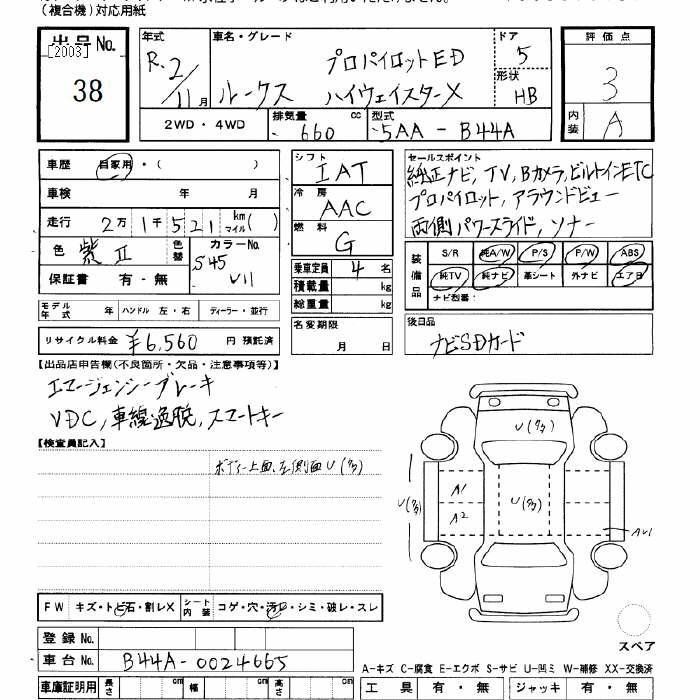 (複合機)対応用紙
出品No. 年式 車名・グレード ドア 評価点
[2003]
38 R. 2/11月 ルークス プロパイロットED 5 3
ハイウェイスターX 形状 HB
2WD・4WD 排気量 660 cc 型式 5AA - B44A 内装 A
車歴 自家用・( ) シフト IAT セールスポイント
車検 年 月 冷房 AAC 純正ナビ, TV, Bカメラ, ビルトインETC
走行 2万1千521 km マイル( ) 燃料 G プロパイロット, アラウンドビュー
色 紫Ⅱ 色替 カラーNo. S45 V11 両側パワースライド, ソナー
保証書 有・無 乗車定員 4名 装備品 S/R 純A/W P/S P/W ABS
積載量 kg 純TV 純ナビ 革シート 外ナビ エアB
総重量 kg ナビ型番:
モデル年式 年 ハンドル 左・右 ディーラー・並行
名変期限 月 日 後日品 ナビSDカード
リサイクル料金 ¥6,560 円 預託済
【出品店申告欄(不良箇所・欠品・注意事項等)】
エマージェンシーブレーキ
VDC, 車線逸脱, スマートキー
【検査員記入】
ボディー上面、左側面U(多)
U(多)
A1
A2
U(多)
U(多)
AU1
FW キズ・トビ石・割レX シート内装 コゲ・穴・汚レ・シミ・破レ・スレ
スペア
登録No.
車台No. B44A-0024665
A-キズ C-腐食 E-エクボ S-サビ U-凹ミ W-補修 XX-交換済
車庫証明用 長さ cm 幅 cm 高さ cm 工具 有・無 ジャッキ 有・無